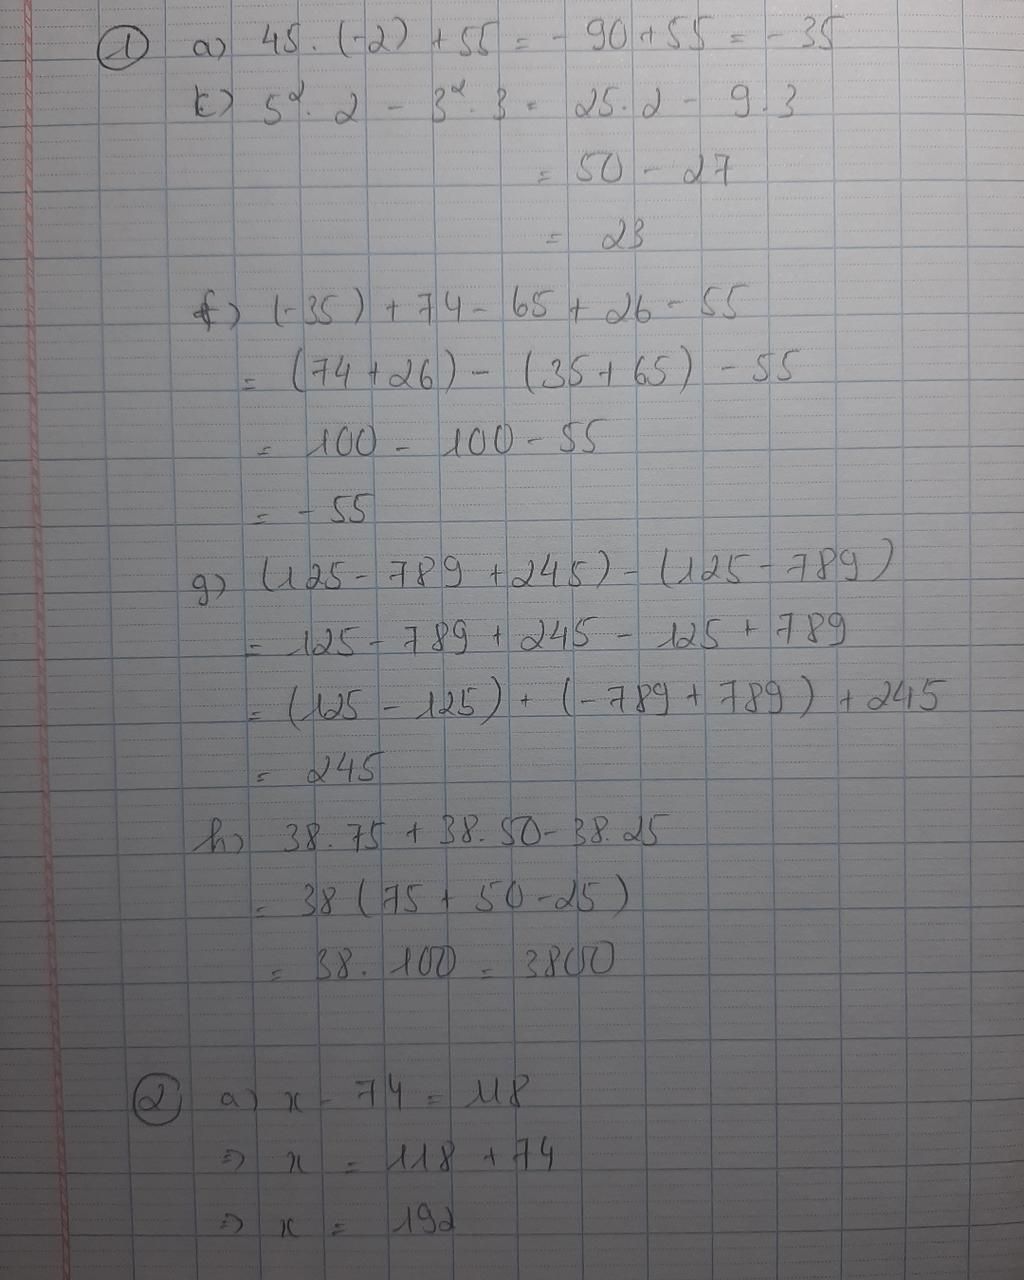 ① a) 45 . (-2) + 55 = - 90 + 55 = - 35
c) 5² . 2 - 3² . 3 = 25 . 2 - 9 . 3
= 50 - 27
= 23
f) (-35) + 74 - 65 + 26 - 55
= (74 + 26) - (35 + 65) - 55
= 100 - 100 - 55
= - 55
g) (125 - 789 + 245) - (125 - 789)
= 125 - 789 + 245 - 125 + 789
= (125 - 125) + (-789 + 789) + 245
= 245
h) 38 . 75 + 38 . 50 - 38 . 25
= 38 (75 + 50 - 25)
= 38 . 100 = 3800
② a) x - 74 = 118
⇒ x = 118 + 74
⇒ x = 192